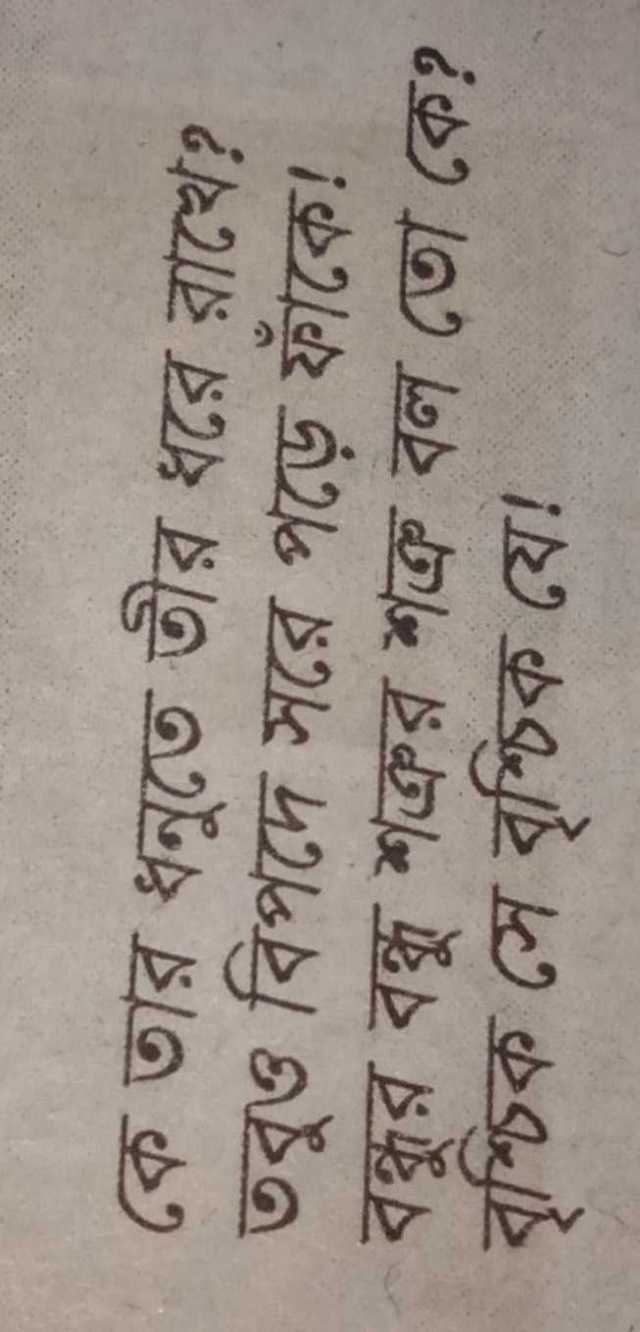 কে তার ধনুতে তীর ধরে রাখে?
তবুও বিপদে সরে পড়ে ফাঁকে!
বন্ধুর বন্ধু শত্রুর শত্রু বল তো কে?
বৃশ্চিক সে বৃশ্চিক যে!